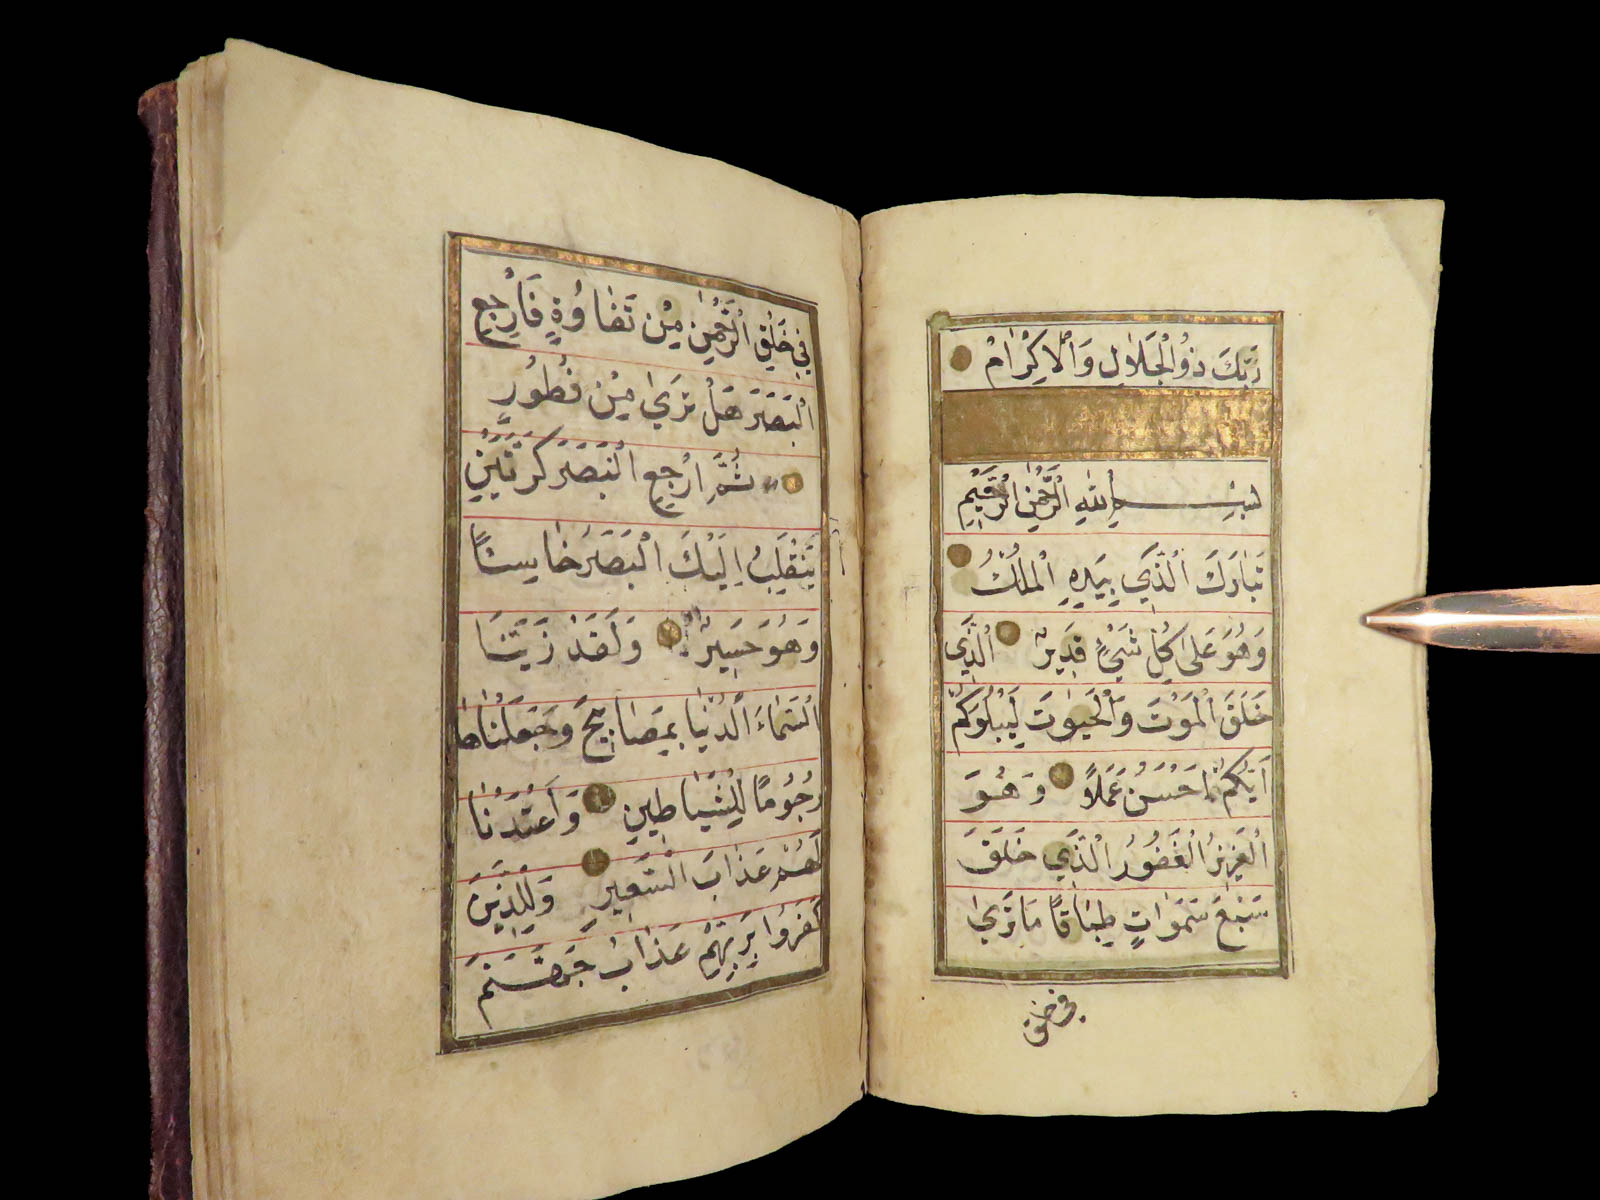 رَبِّكَ ذُو الْجَلَالِ وَالْاِكْرَامْ
بِسْمِ اللهِ الرَّحْمٰنِ الرَّحِيمِ
تَبَارَكَ الَّذِي بِيَدِهِ الْمُلْكُ
وَهُوَ عَلٰى كُلِّ شَيْءٍ قَدِيرٌ الَّذِي
خَلَقَ الْمَوْتَ وَالْحَيٰوتَ لِيَبْلُوَكُمْ
اَيُّكُمْ اَحْسَنُ عَمَلًا وَهُوَ
الْعَزِيزُ الْغَفُورُ الَّذِي خَلَقَ
سَبْعَ سَمٰوَاتٍ طِبَاقًا مَا تَرٰى
فى خلق
فِي خَلْقِ الرَّحْمٰنِ مِنْ تَفَاوُةٍ فَارْجِعِ
الْبَصَرَ هَلْ تَرٰي مِنْ فُطُورٍ
ثُمَّ ارْجِعِ الْبَصَرَ كَرَّتَيْنِ
يَنْقَلِبْ اِلَيْكَ الْبَصَرُ خَاسِئًا
وَهُوَ حَسِيرٌ وَلَقَدْ زَيَّنَا
السَّمَاءَ الدُّنْيَا بِمَصَابِيحَ وَجَعَلْنَاهَا
رُجُومًا لِلشَّيَاطِينِ وَاَعْتَدْنَا
لَهُمْ عَذَابَ السَّعِيرِ وَلِلَّذِينَ
كَفَرُوا بِرَبِّهِمْ عَذَابُ جَهَنَّمَ